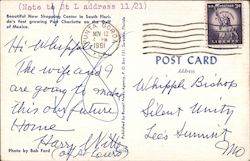 (Note to St L address 11/21)
Beautiful New Shopping Center in South Florida's fast growing Port Charlotte on the Gulf of Mexico.
NOV 12
1961
LIBERTY
POST CARD
Address
Hi Whipple
The wife and I
are going to make
this our future
Home
Harry S Witte
of St Louis
Photo by Bob Ford
Whipple Bishop
Silent Unity
Lees Summit
Mo